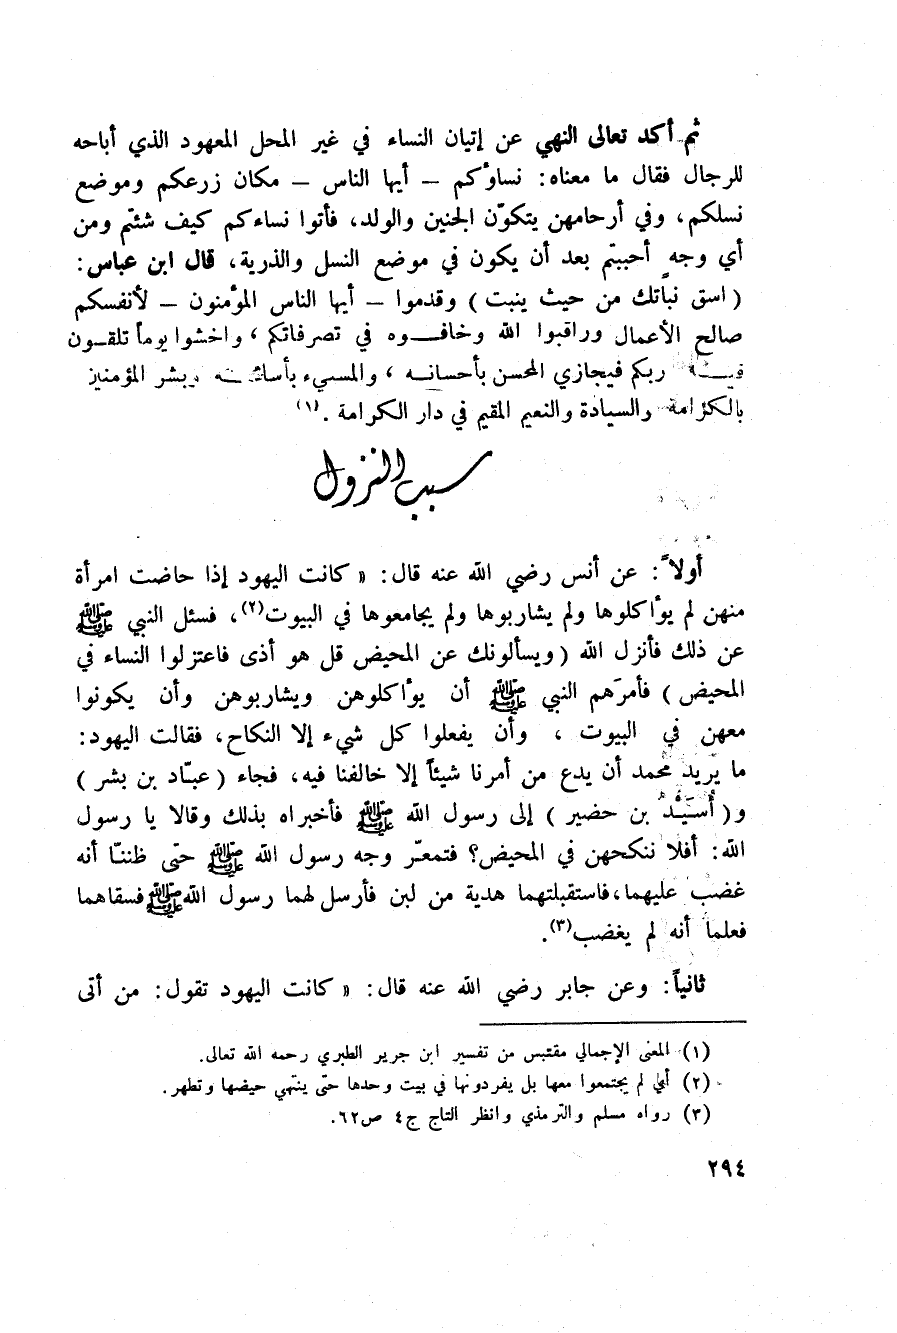 ثم أكد تعالى النهي عن إتيان النساء في غير المحل المعهود الذي أباحه
للرجال فقال ما معناه: نساؤكم – أيها الناس – مكان زرعكم وموضع
نسلكم، وفي أرحامهن يتكوّن الجنين والولد، فأتوا نساءكم كيف شئتم ومن
أي وجهٍ أحببتم بعد أن يكون في موضع النسل والذرية، قال ابن عباس:
(اسق نباتك من حيث ينبت) وقدموا – أيها الناس المؤمنون – لأنفسكم
صالح الأعمال وراقبوا الله وخافـــوه في تصرفاتكم، واخشوا يوماً تلقـون
ربكم فيجازي المحسن بأحسانـه، والمسيء بأساءتـه وبشر المؤمنين
بالكرامة والسيادة والنعيم المقيم في دار الكرامة.(١)
سبب النزول
أولاً: عن أنس رضي الله عنه قال: « كانت اليهود إذا حاضت امرأة
منهن لم يؤاكلوها ولم يشاربوها ولم يجامعوها في البيوت(٢)، فسئل النبي ﷺ
عن ذلك فأنزل الله (ويسألونك عن المحيض قل هو أذى فاعتزلوا النساء في
المحيض) فأمرَهم النبي ﷺ أن يؤاكلوهن ويشاربوهن وأن يكونوا
معهن في البيوت ، وأن يفعلوا كل شيء إلا النكاح، فقالت اليهود:
ما يريد محمد أن يدع من أمرنا شيئاً إلا خالفنا فيه، فجاء (عبّاد بن بشر)
و(أُسَيْدُ بن حضير) إلى رسول الله ﷺ فأخبراه بذلك وقالا يا رسول
الله: أفلا ننكحهن في المحيض؟ فتمعّر وجه رسول الله ﷺ حتّى ظننّا أنه
غضب عليهما،فاستقبلتهما هدية من لبن فأرسل لهما رسول الله ﷺ فسقاهما
فعلما أنه لم يغضب(٣).
ثانياً: وعن جابر رضي الله عنه قال: « كانت اليهود تقول: من أتى
(١) المعنى الإجمالي مقتبس من تفسير ابن جرير الطبري رحمه الله تعالى.
(٢) أي لم يجتمعوا معها بل يفردونها في بيت وحدها حتّى ينتهي حيضها وتطهر.
(٣) رواه مسلم والترمذي وانظر التاج ج٤ ص٦٢.
٢٩٤